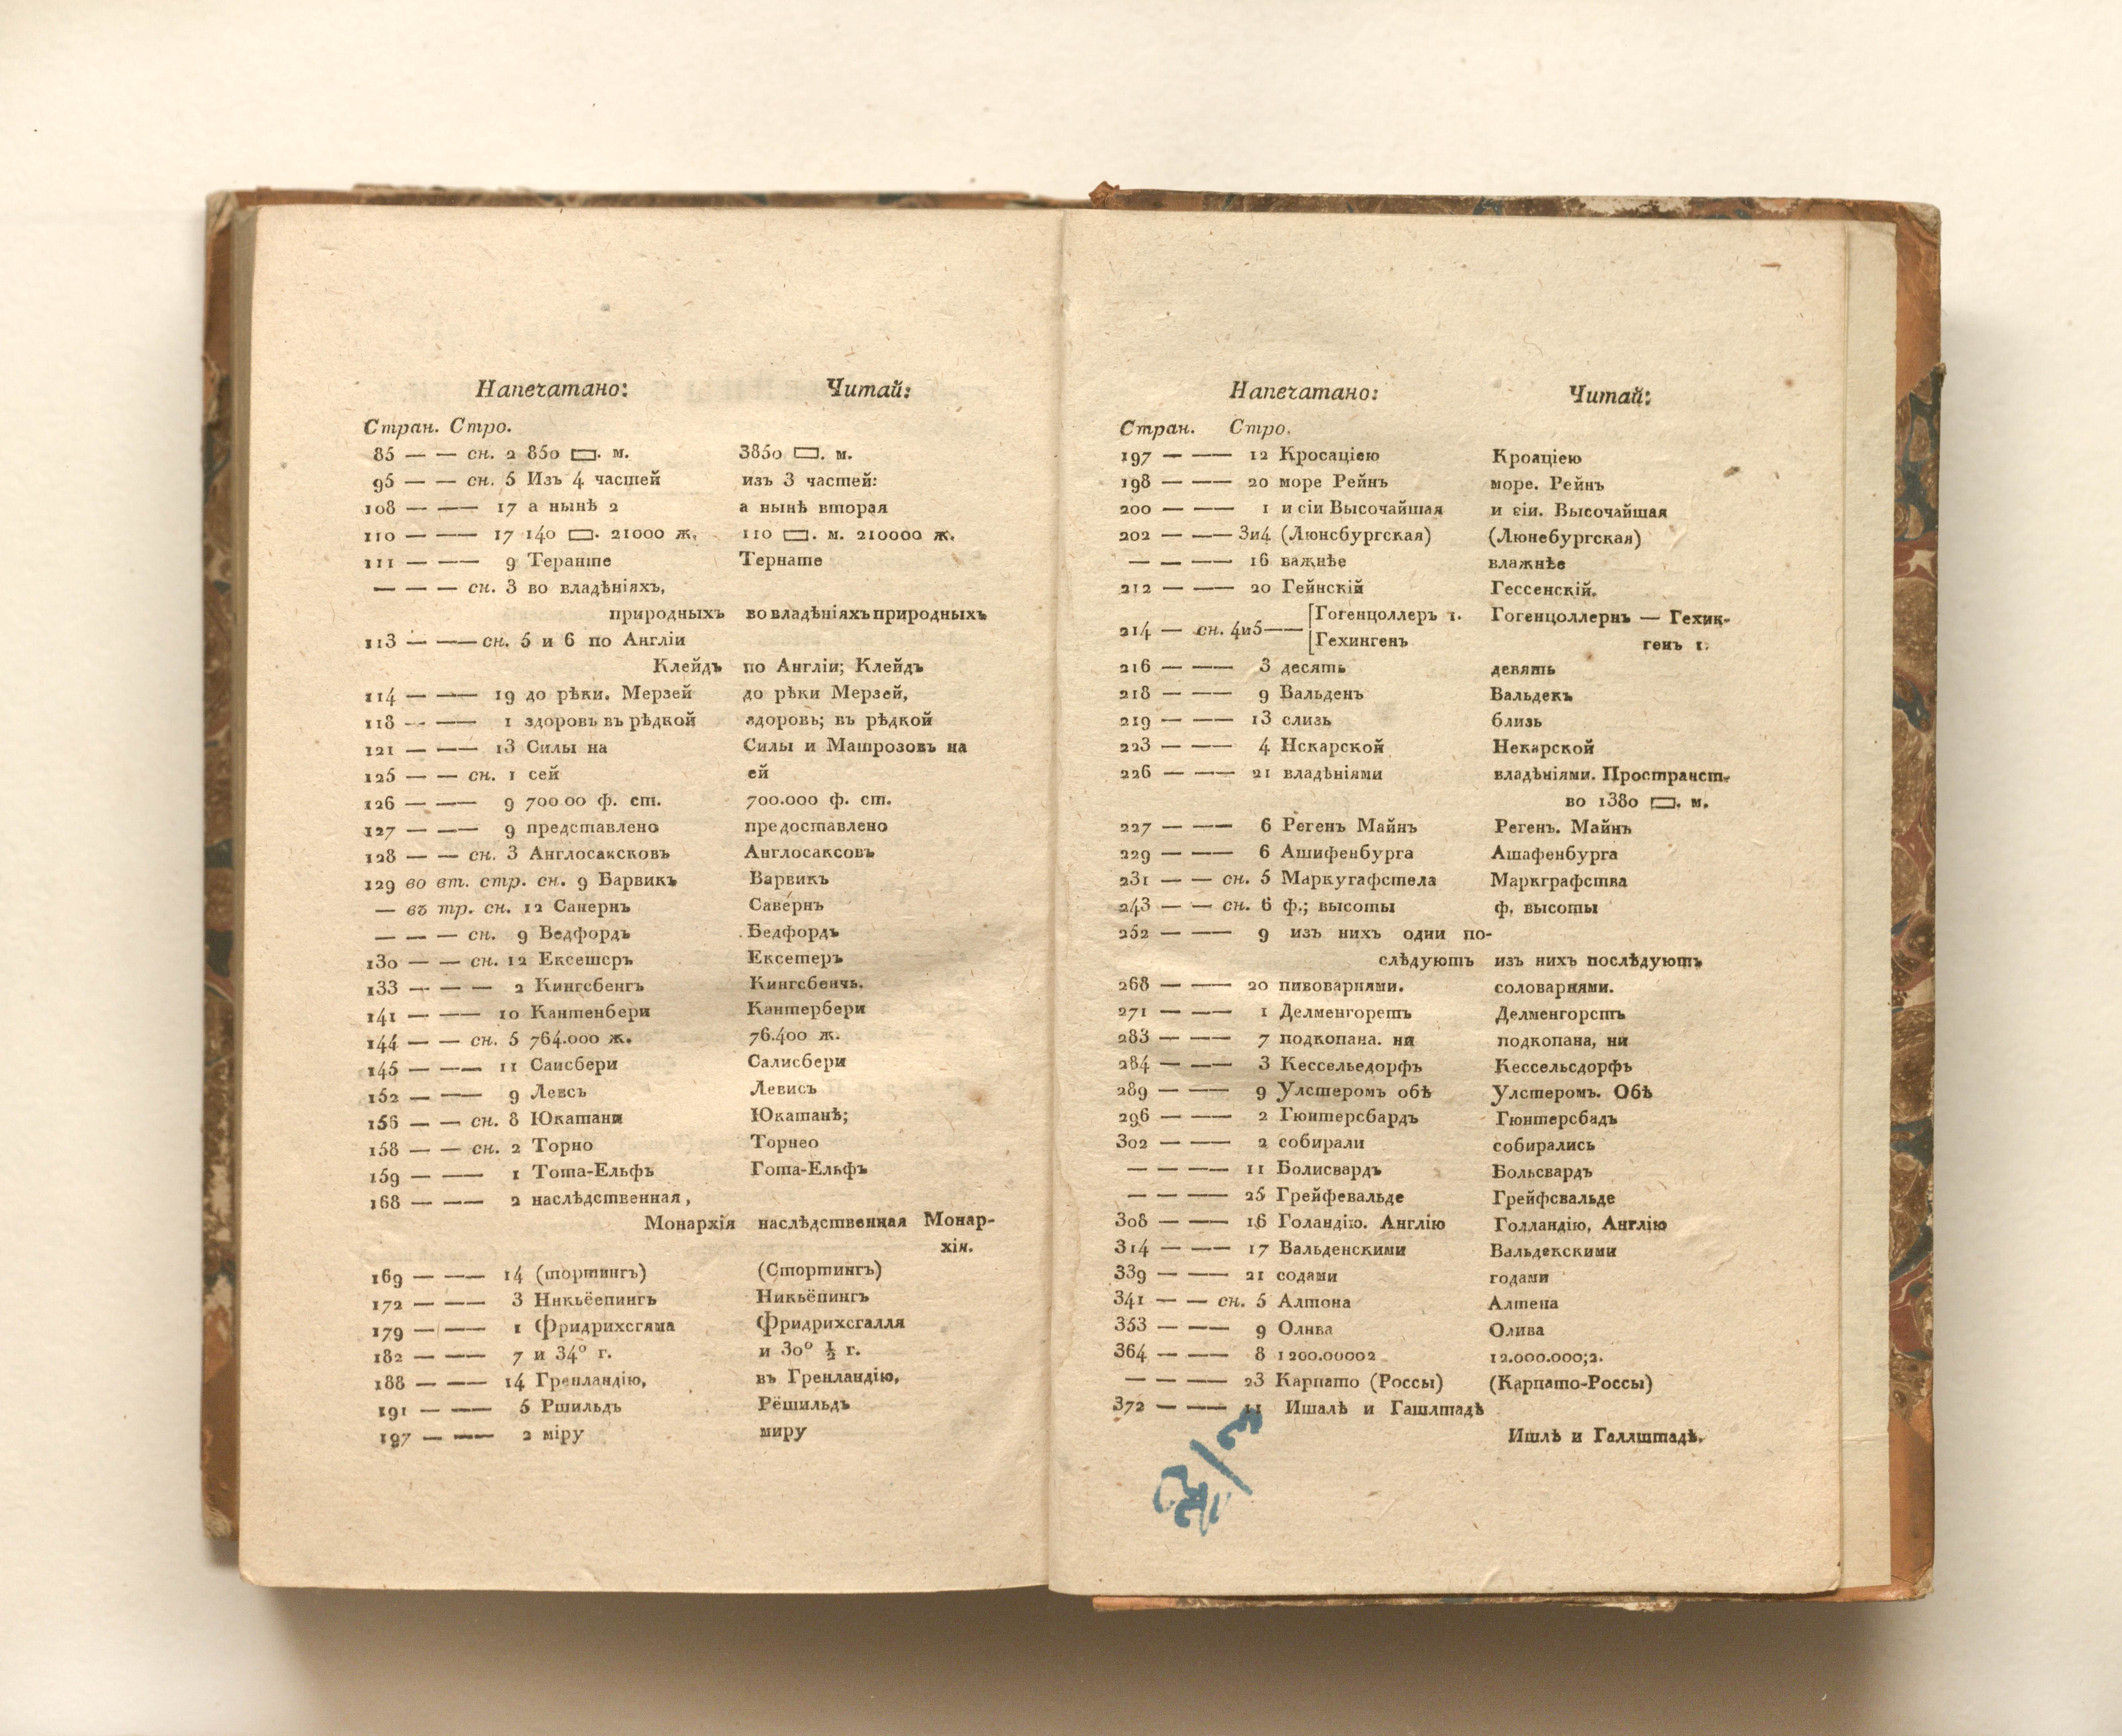 Напечатано: Читай:
Стран. Стро.
85 — — сн. 2 850 ▭. м. 3850 ▭. м.
95 — — сн. 5 Изъ 4 частей изъ 3 частей:
108 — —— 17 а нынѣ 2 а нынѣ вторая
110 — —— 17 140 ▭. 21000 ж. 110 ▭. м. 210000 ж.
111 — —— 9 Теранте Тернате
— — — сн. 3 во владѣніяхъ,
природныхъ во владѣніяхъ природныхъ
113 — —— сн. 5 и 6 по Англіи
Клейдъ по Англіи; Клейдъ
114 — —— 19 до рѣки. Мерзей до рѣки Мерзей,
118 — —— 1 здоровь въ рѣдкой здоровь; въ рѣдкой
121 — —— 13 Силы на Силы и Матрозовъ на
125 — — сн. 1 сей ей
126 — —— 9 700.00 ф. ст. 700.000 ф. ст.
127 — —— 9 представлено предоставлено
128 — — сн. 3 Англосаксковъ Англосаксовъ
129 во вт. стр. сн. 9 Барвикъ Варвикъ
— въ тр. сн. 12 Санернъ Савернъ
— — — сн. 9 Ведфордъ Бедфордъ
130 — — сн. 12 Ексетсръ Ексетеръ
133 — — — 2 Кингсбенгъ Кингсбенчь.
141 — —— 10 Кантенбери Кантербери
144 — — сн. 5 764.000 ж. 76.400 ж.
145 — —— 11 Саисбери Салисбери
152 — —— 9 Левсъ Левисъ
156 — — сн. 8 Юкатани Юкатанѣ;
158 — — сн. 2 Торно Торнео
159 — —— 1 Тота-Ельфъ Гота-Ельфъ
168 — —— 2 наслѣдственная,
Монархія наслѣдственная Монар-
хія.
169 — —— 14 (тортингъ) (Стортингъ)
172 — —— 3 Никьёепингъ Никьёпингъ
179 — —— 1 Фридрихсгяма Фридрихсгалля
182 — —— 7 и 34° г. и 30° ½ г.
188 — —— 14 Гренландію, въ Гренландію,
191 — —— 5 Ршильдъ Рёшильдъ
197 — —— 2 міру миру
Напечатано: Читай:
Стран. Стро.
197 — —— 12 Кросаціею Кроаціею
198 — —— 20 море Рейнъ море. Рейнъ
200 — —— 1 и сіи Высочайшая и сіи. Высочайшая
202 — —— 3и4 (Люнсбургская) (Люнебургская)
— — —— 16 важнѣе влажнѣе
212 — —— 20 Гейнскій Гессенскій.
214 — сн. 4и5 —— [Гогенцоллеръ 1. Гогенцоллернъ — Гехин-
[Гехингенъ генъ 1.
216 — —— 3 десять девять
218 — —— 9 Вальденъ Вальдекъ
219 — —— 13 слизь близь
223 — —— 4 Нскарской Некарской
226 — —— 21 владѣніями владѣніями. Пространст-
во 1380 ▭. м.
227 — —— 6 Регенъ Майнъ Регенъ. Майнъ
229 — —— 6 Ашифенбурга Ашафенбурга
231 — — сн. 5 Маркугафстела Маркграфства
243 — — сн. 6 ф.; высоты ф. высоты
252 — —— 9 изъ нихъ одни по-
слѣдуютъ изъ нихъ послѣдуютъ
268 — —— 20 пивоварнями. соловарнями.
271 — —— 1 Делменгоретъ Делменгорстъ
283 — —— 7 подкопана. ни подкопана, ни
284 — —— 3 Кессельедорфъ Кессельсдорфъ
289 — —— 9 Улстеромъ обѣ Улстеромъ. Обѣ
296 — —— 2 Гюнтерсбардъ Гюнтерсбадъ
302 — —— 2 собирали собирались
— — —— 11 Болисвардъ Больсвардъ
— — —— 25 Грейфевальде Грейфсвальде
308 — —— 16 Голандію. Англію Голландію, Англію
314 — —— 17 Вальденскими Вальдекскими
339 — —— 21 содами годами
341 — — сн. 5 Алтона Алтена
353 — —— 9 Олнва Олива
364 — —— 8 1200.00002 12.000.000;2.
— — —— 23 Карпато (Россы) (Карпато-Россы)
372 — —— 11 Ишалѣ и Гашлтадѣ
Ишлѣ и Галлштадѣ.